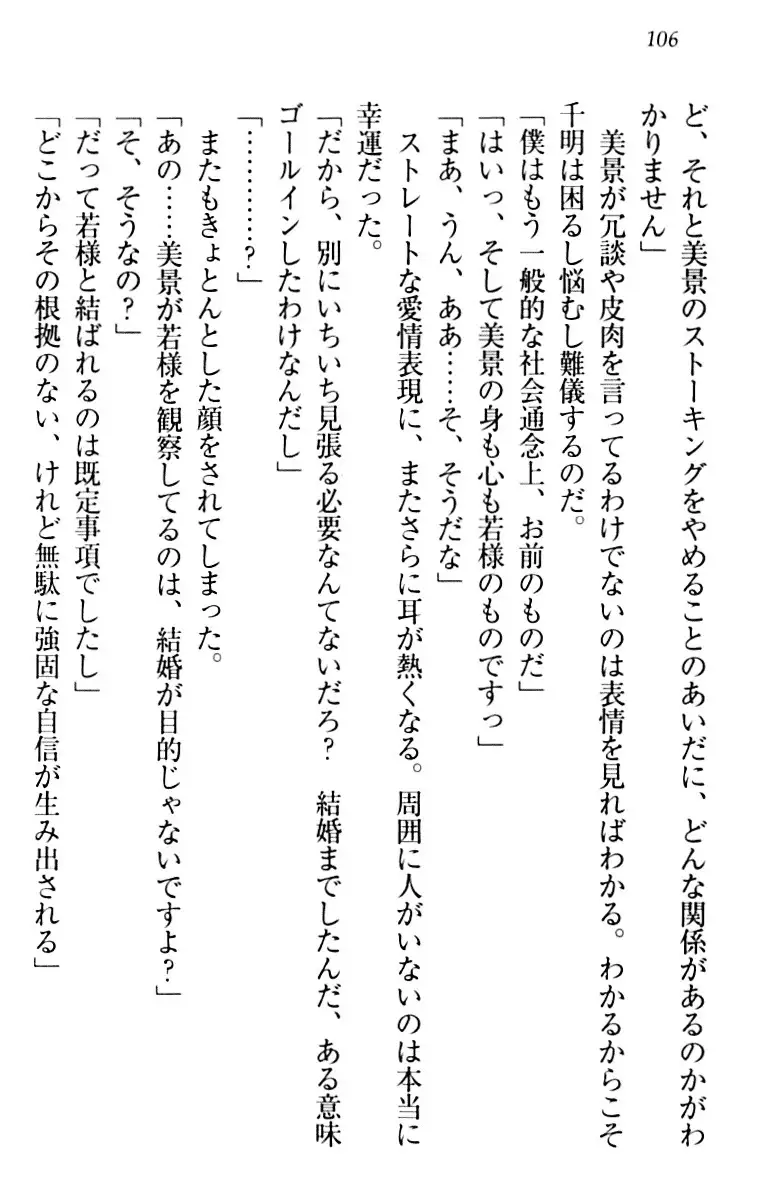 106
ど、それと美景のストーキングをやめることのあいだに、どんな関係があるのかがわ
かりません」
美景が冗談や皮肉を言ってるわけでないのは表情を見ればわかる。わかるからこそ
千明は困るし悩むし難儀するのだ。
「僕はもう一般的な社会通念上、お前のものだ」
「はいっ、そして美景の身も心も若様のものですっ」
「まあ、うん、ああ……そ、そうだな」
ストレートな愛情表現に、またさらに耳が熱くなる。周囲に人がいないのは本当に
幸運だった。
「だから、別にいちいち見張る必要なんてないだろ？　結婚までしたんだ、ある意味
ゴールインしたわけなんだし」
「…………？」
またもきょとんとした顔をされてしまった。
「あの……美景が若様を観察してるのは、結婚が目的じゃないですよ？」
「そ、そうなの？」
「だって若様と結ばれるのは既定事項でしたし」
「どこからその根拠のない、けれど無駄に強固な自信が生み出される」